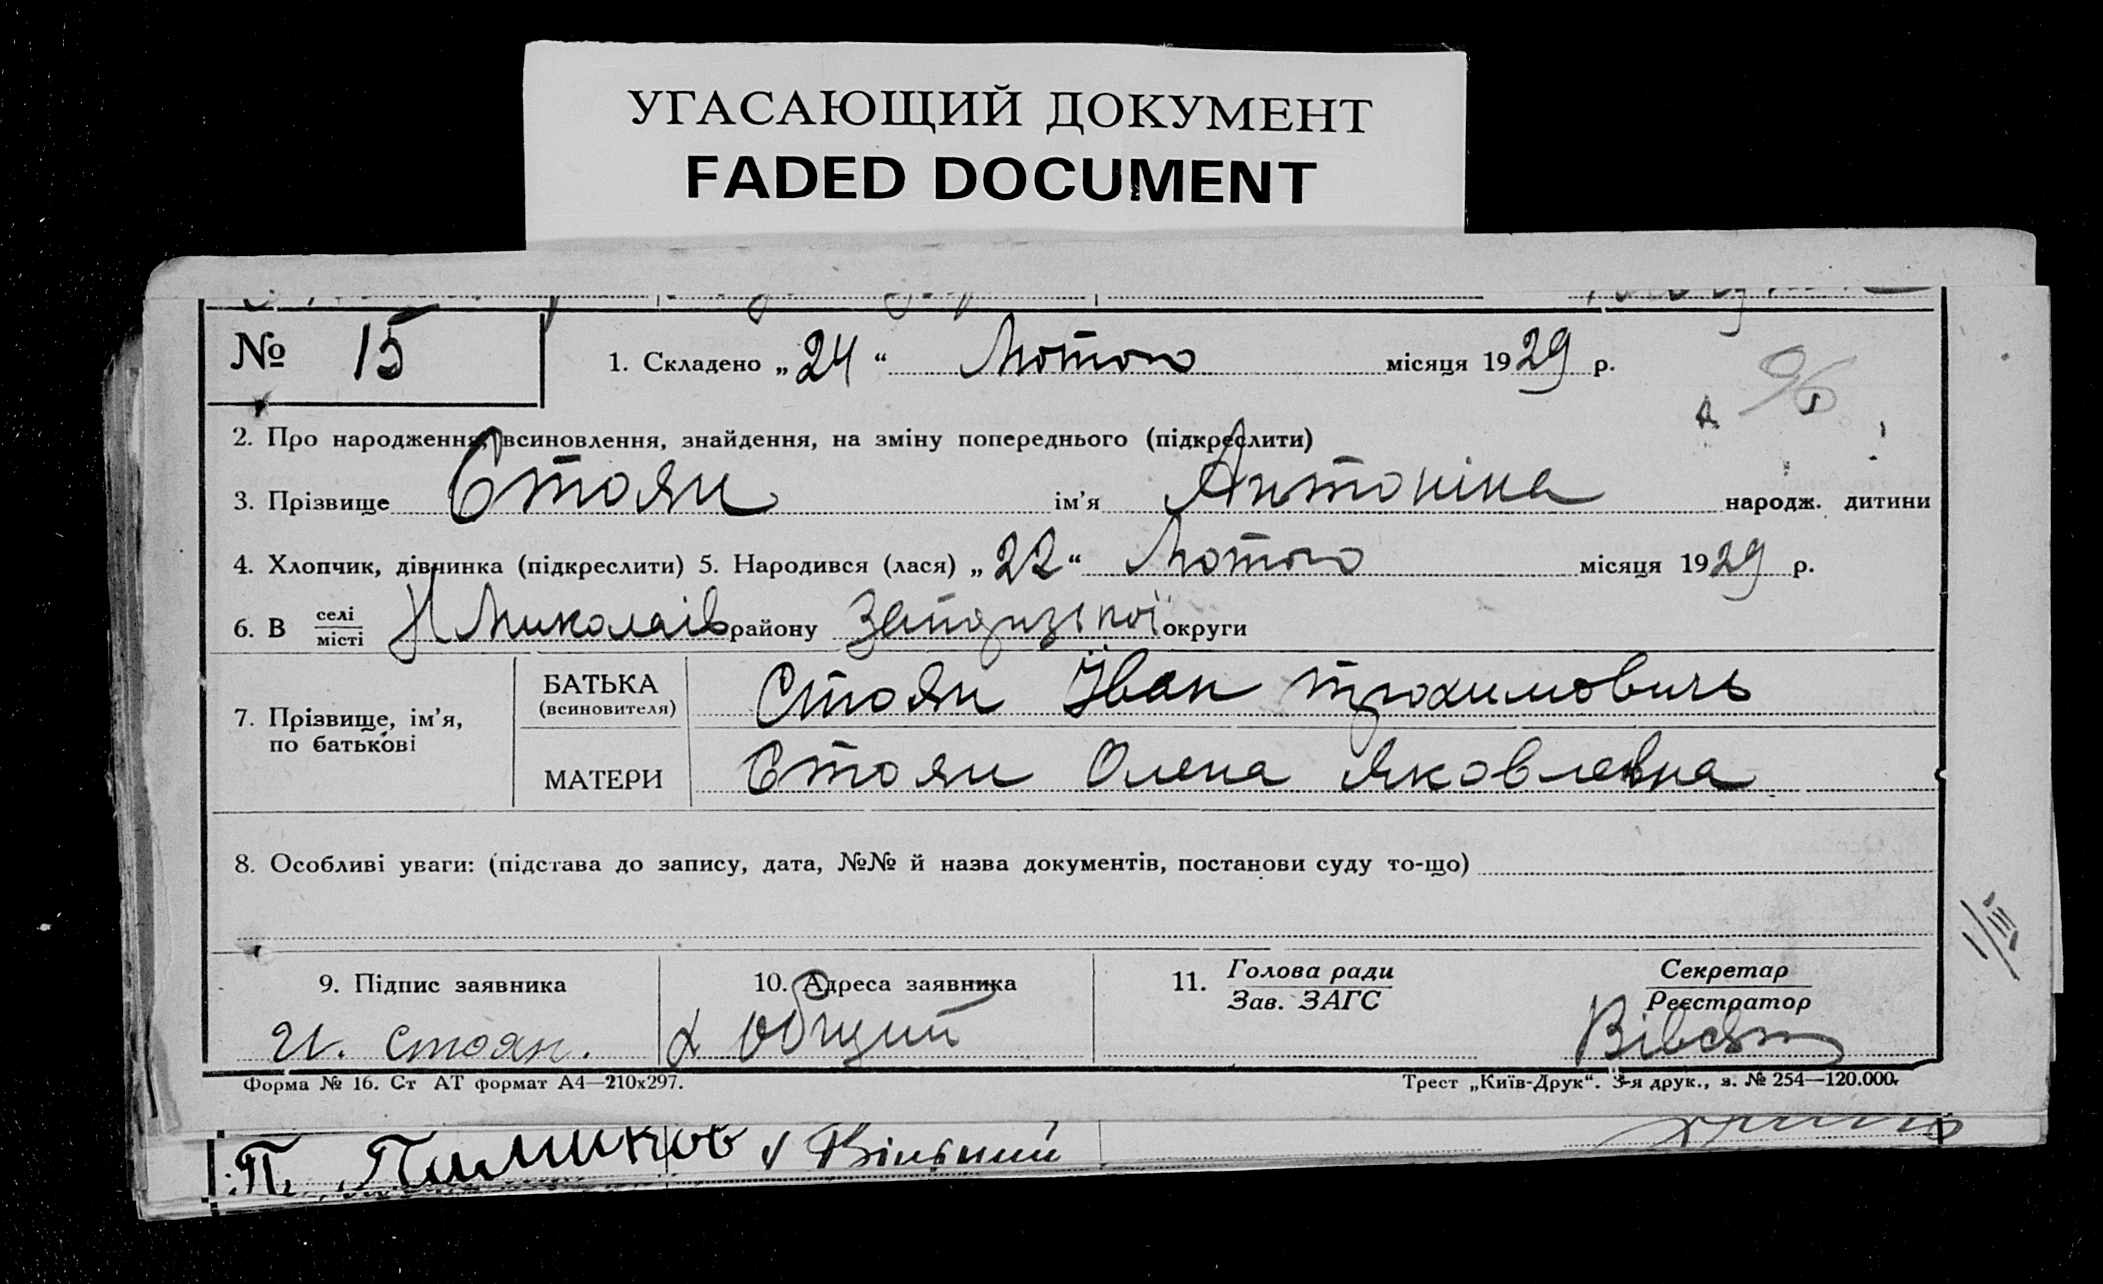 УГАСАЮЩИЙ ДОКУМЕНТ
FADED DOCUMENT
№ 15
1. Складено „24“ Лютого місяця 1929 р.
96
2. Про народження, всиновлення, знайдення, на зміну попереднього (підкреслити)
3. Прізвище Стоян ім’я Антоніна народж. дитини
4. Хлопчик, дівчинка (підкреслити) 5. Народився (лася) „22“ Лютого місяця 1929 р.
6. В селі/місті Н Миколаїв району Запоризької округи
7. Прізвище, ім’я, по батькові
БАТЬКА (всиновителя) Стоян Іван Трохимовичь
МАТЕРИ Стоян Олена Яковлевна
8. Особливі уваги: (підстава до запису, дата, №№ й назва документів, постанови суду то-що)
1/III
9. Підпис заявника 10. Адреса заявника 11. Голова ради Секретар
Зав. ЗАГС Реєстратор
И. Стоян. х
Форма № 16. Ст АТ формат А4—210х297. Трест „Київ-Друк“. 3-я друк., з. № 254—120.000.
П. х Вільний